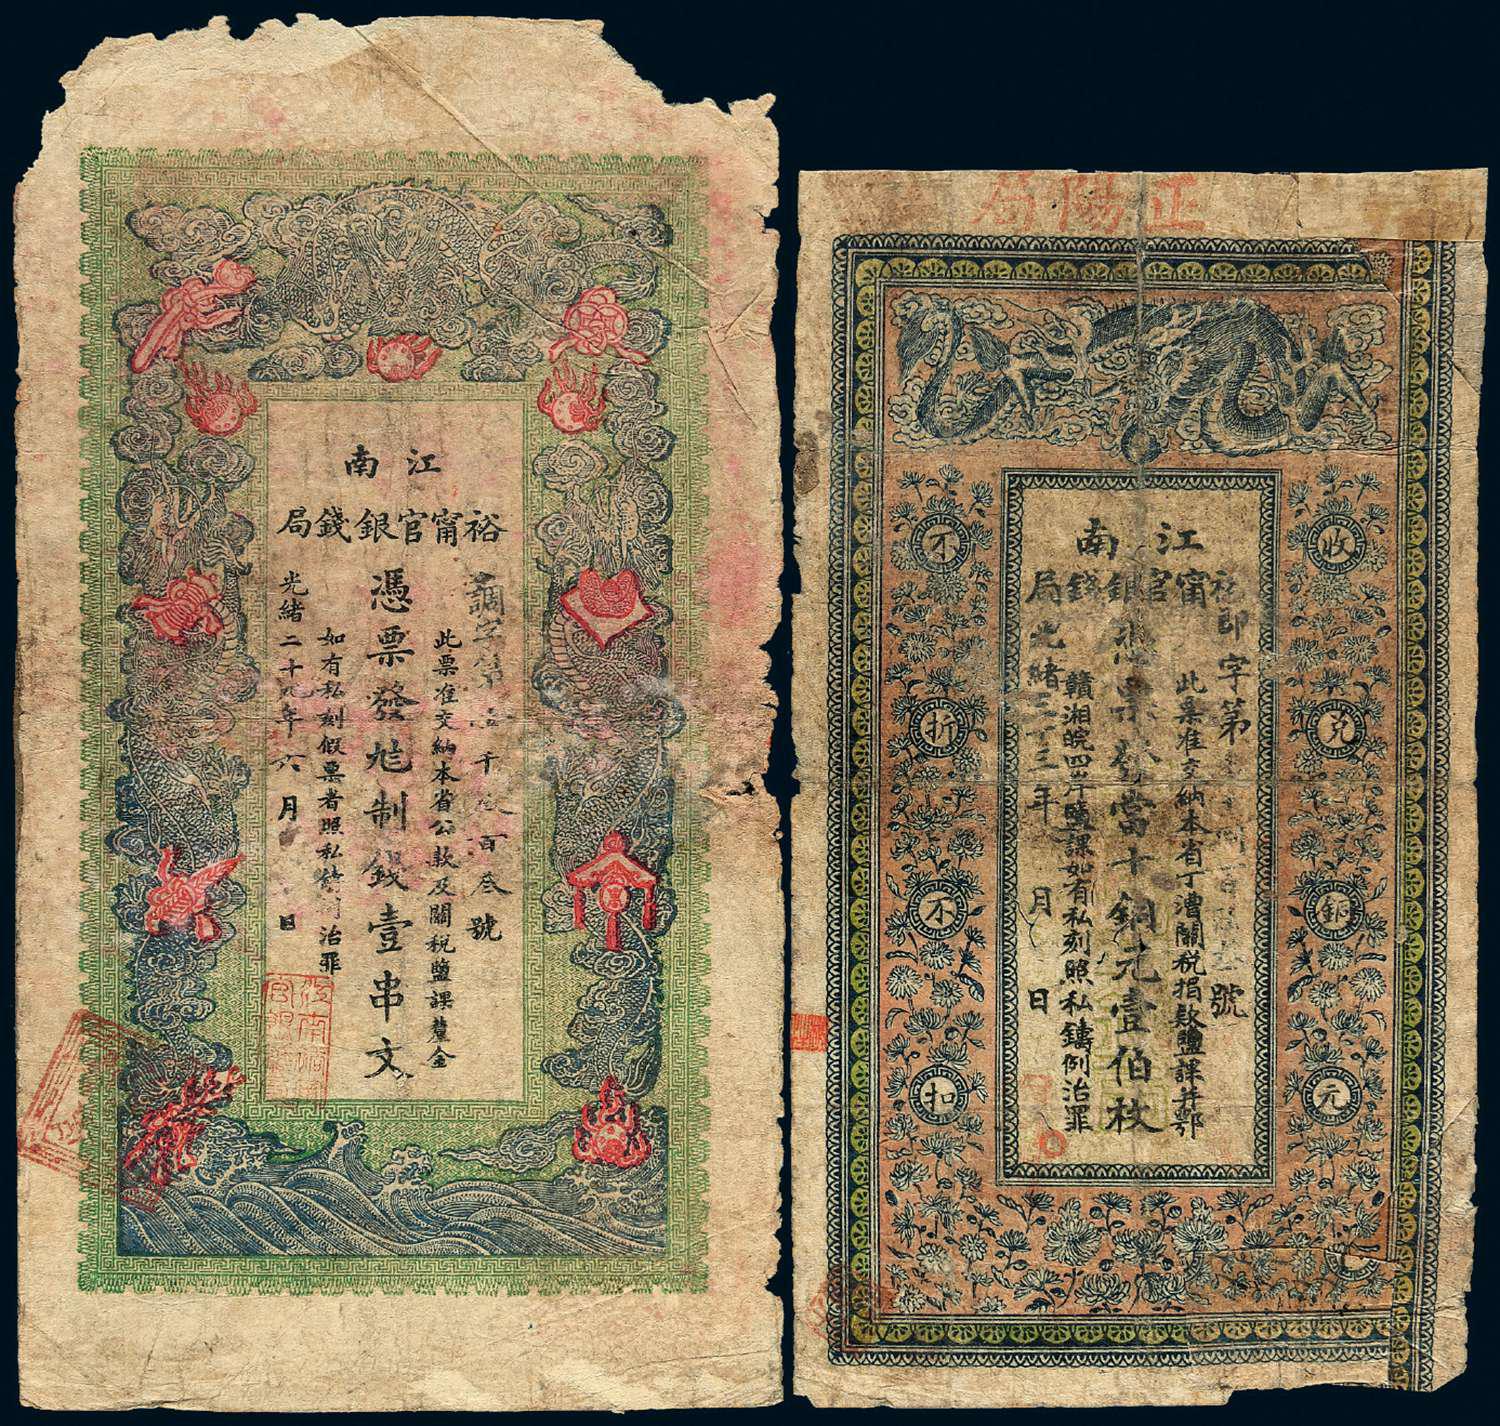 江南
裕甯官銀錢局
字第 千 百叁號
此票准交納本省公款及關税鹽課釐金
憑票發足制錢壹串文
如有私刻假票者照私鑄 治罪
光緒二十九年六月 日
正陽局
江南
裕甯官銀錢局
即字第 號
此票准交納本省丁漕關税捐款鹽課并鄂
贛湘皖四岸鹽課如有私刻照私鑄例治罪
憑票發當十銅元壹伯枚
光緒三十三年 月 日
收兑銅元
不折不扣